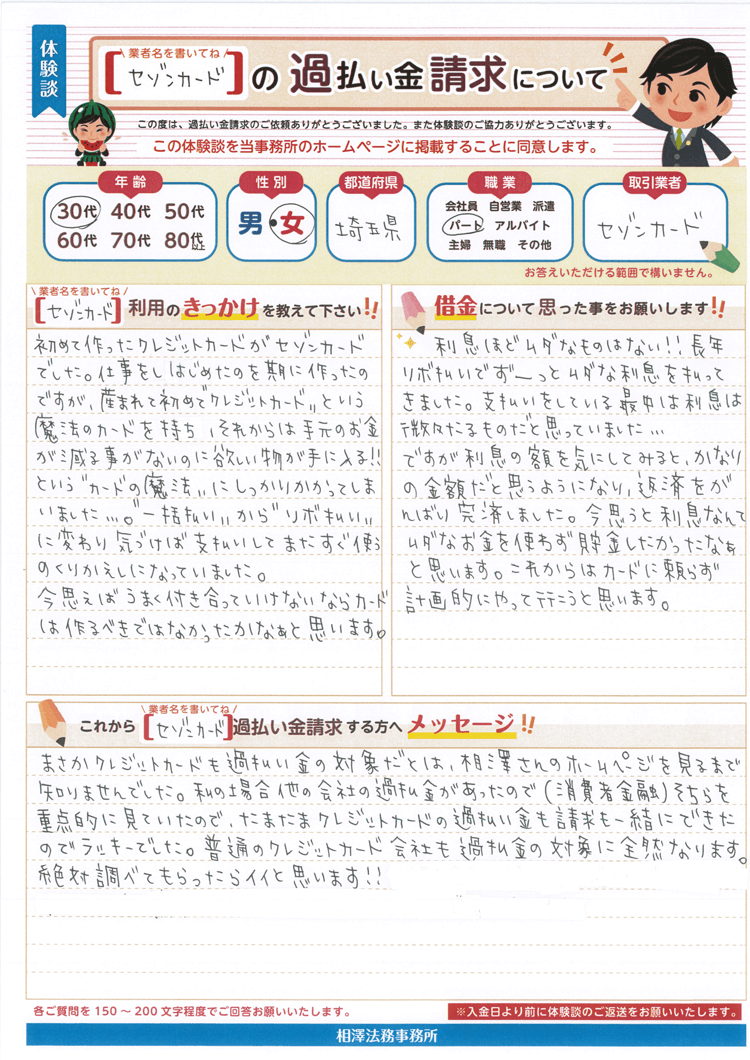 体験談
業者名を書いてね
【セゾンカード】の 過払い金請求について
この度は、過払い金請求のご依頼ありがとうございました。また体験談のご協力ありがとうございます。
この体験談を当事務所のホームページに掲載することに同意します。
年齢
30代 40代 50代
60代 70代 80代以上
性別
男・女
都道府県
埼玉県
職業
会社員 自営業 派遣
パート アルバイト
主婦 無職 その他
取引業者
セゾンカード
お答えいただける範囲で構いません。
業者名を書いてね
【セゾンカード】利用のきっかけを教えて下さい!!
初めて作ったクレジットカードがセゾンカード
でした。仕事をしはじめたのを期に作ったの
ですが、産まれて初めて〝クレジットカード〟という
魔法のカードを持ち、それからは手元のお金
が減る事がないのに欲しい物が手に入る!!
という〝カードの魔法〟にしっかりかかってしま
いました…。〝一括払い〟から〝リボ払い〟
に変わり気づけば支払いしてまたすぐ使う
のくりかえしになっていました。
今思えばうまく付き合っていけないならカード
は作るべきではなかったかなぁと思います。
借金について思った事をお願いします!!
利息ほどムダなものはない!!長年
リボ払いでずーっとムダな利息を払って
きました。支払いをしている最中は利息は
微々たるものだと思っていました…
ですが利息の額を気にしてみると、かなり
の金額だと思うようになり、返済をが
んばり完済しました。今思うと利息なんて
ムダなお金を使わず貯金したかったなぁ
と思います。これからはカードに頼らず
計画的にやって行こうと思います。
業者名を書いてね
これから【セゾンカード】過払い金請求する方へメッセージ!!
まさかクレジットカードも過払い金の対象だとは、相澤さんのホームページを見るまで
知りませんでした。私の場合他の会社の過払金があったので(消費者金融)そちらを
重点的に見ていたので、たまたまクレジットカードの過払い金も請求も一緒にできた
のでラッキーでした。普通のクレジットカード会社も過払金の対象に全然なります。
絶対調べてもらったらイイと思います!!
各ご質問を150～200文字程度でご回答お願いいたします。
※入金日より前に体験談のご返送をお願いいたします。
相澤法務事務所